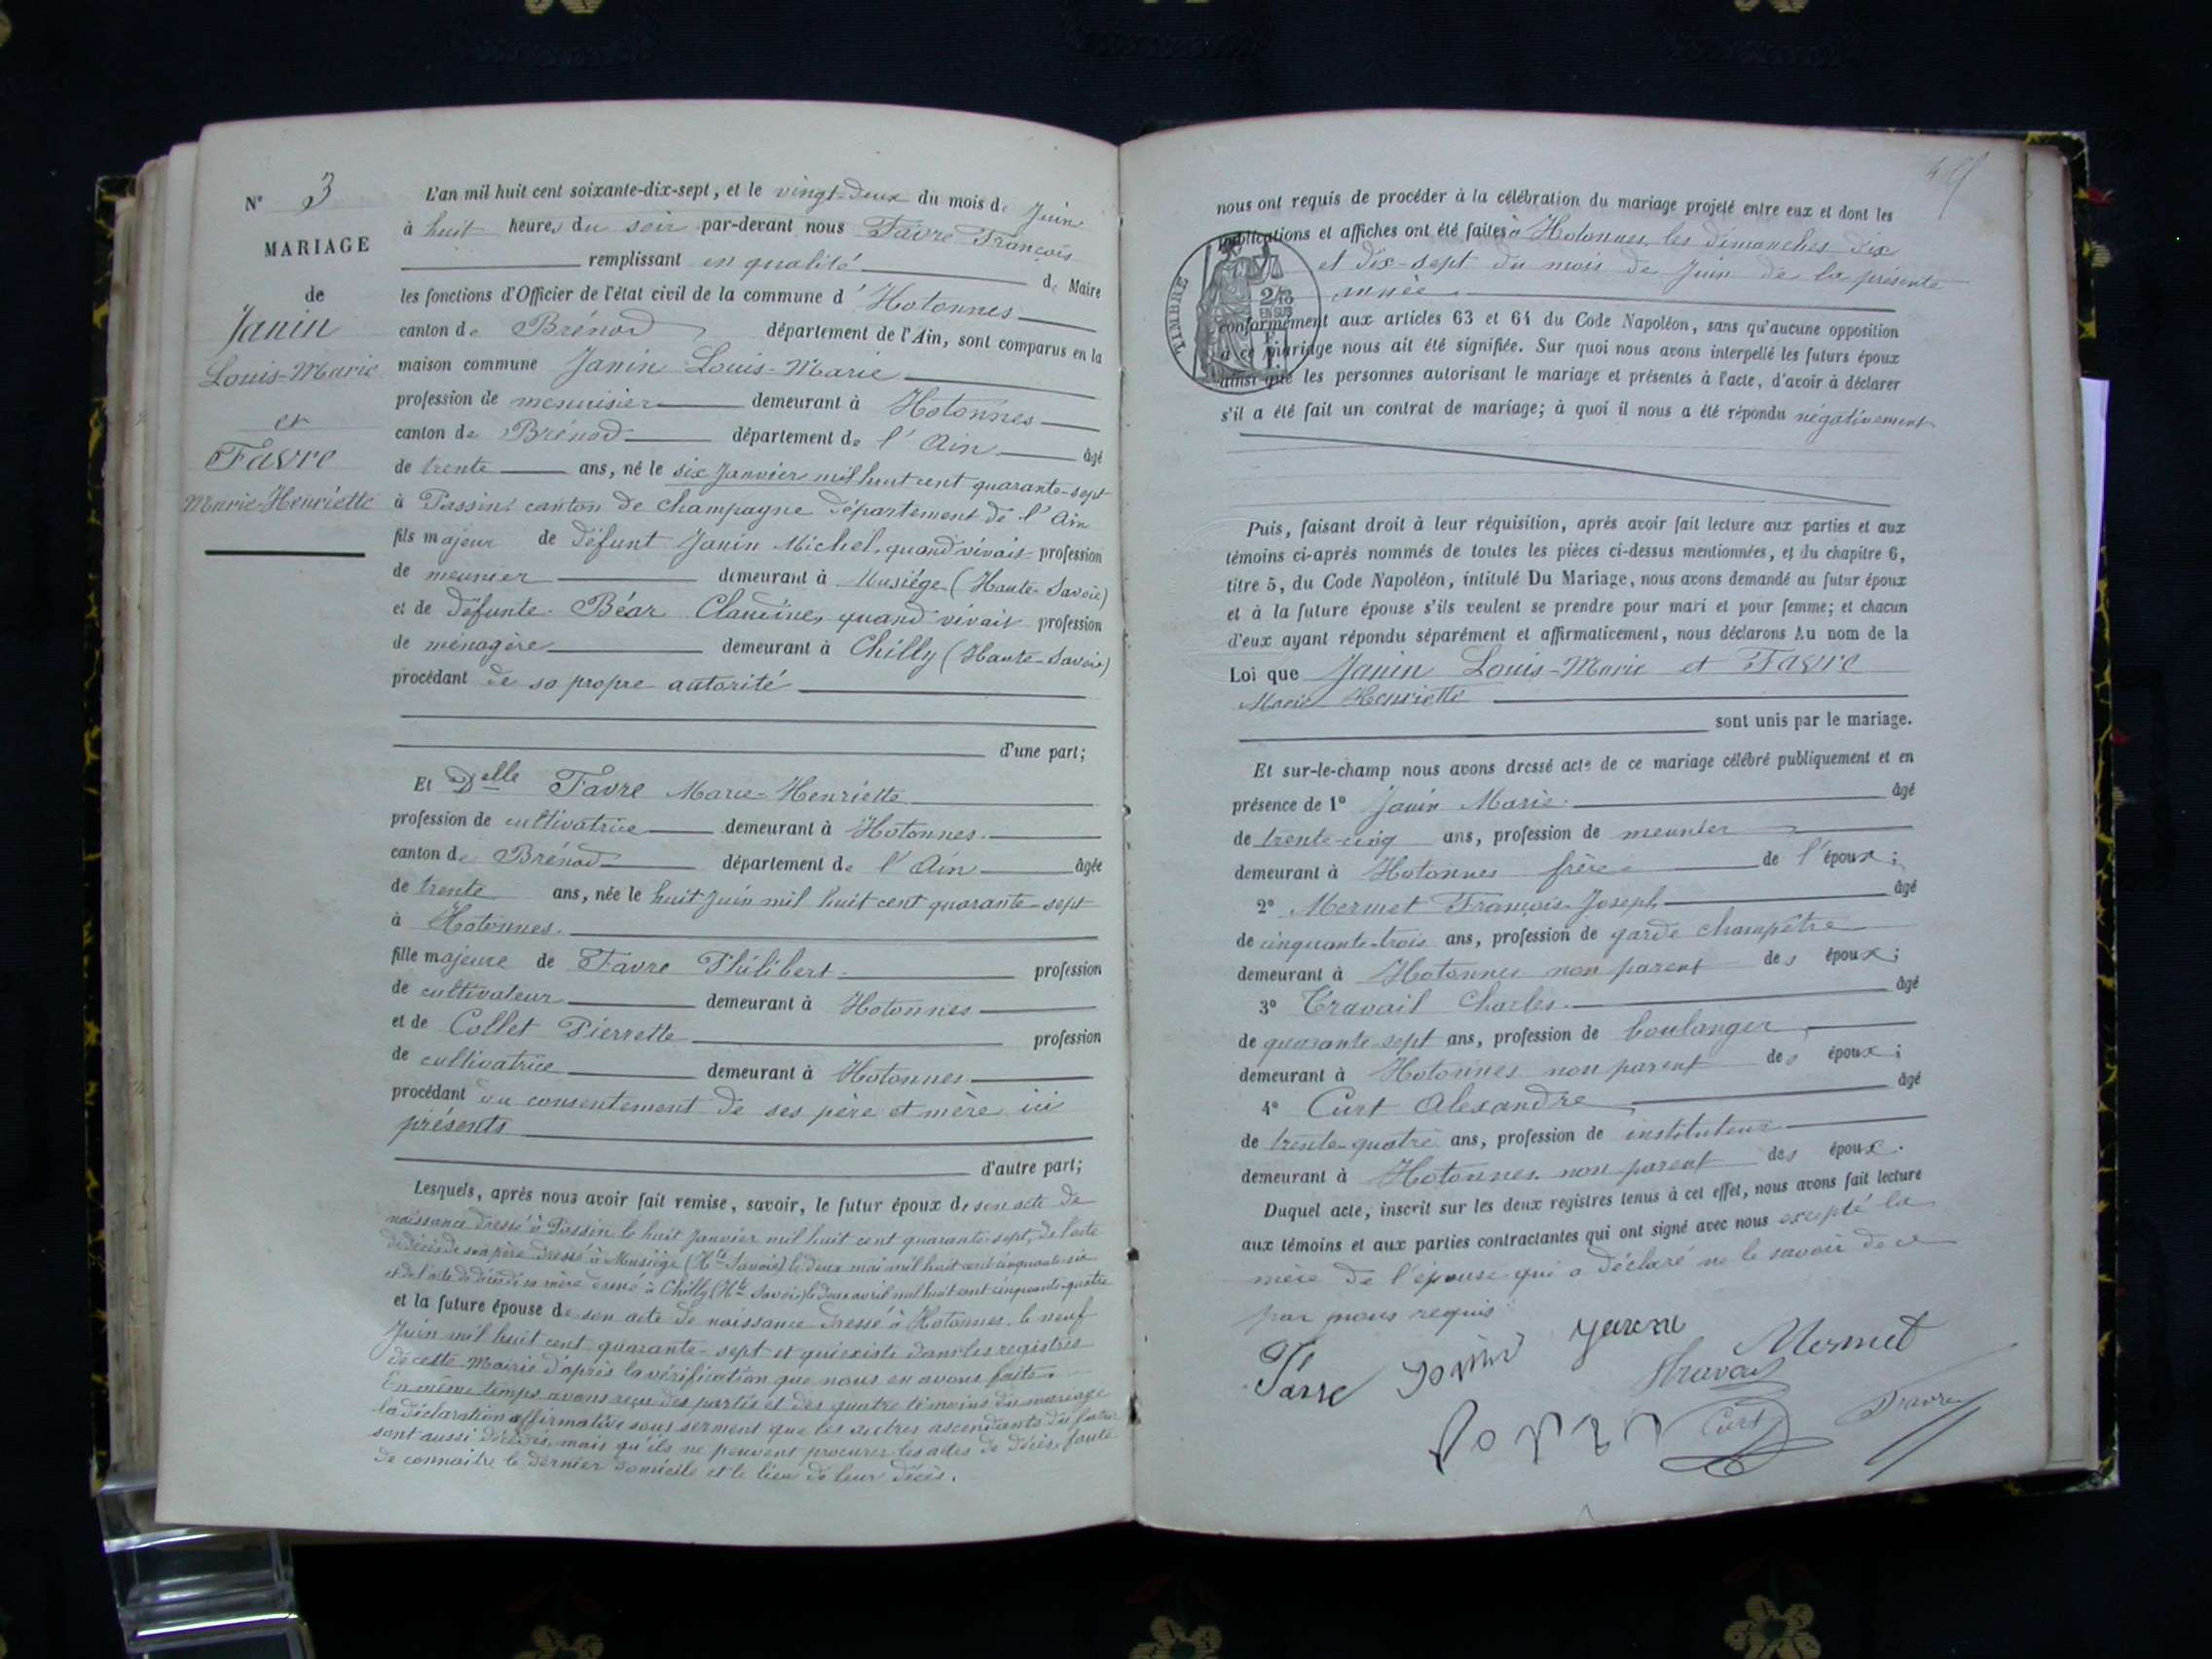 N° 3
MARIAGE
de
Janin
Louis-Marie
et
Favre
Marie-Henriette
L'an mil huit cent soixante-dix-sept, et le vingt-deux du mois de Juin
à huit heures du soir par-devant nous Favre François
remplissant en qualité de Maire
les fonctions d'Officier de l'état civil de la commune d'Hotonnes
canton de Brénod département de l'Ain, sont comparus en la
maison commune Janin Louis-Marie
profession de menuisier demeurant à Hotonnes
canton de Brénod département de l'Ain âgé
de trente ans, né le six Janvier mil huit cent quarante-sept
à Passin canton de Champagne département de l'Ain
fils majeur de défunt Janin Michel, quand vivait profession
de meunier demeurant à Musiége (Haute-Savoie)
et de défunte Béar Claudine, quand vivait profession
de ménagère demeurant à Chilly (Haute-Savoie)
procédant de sa propre autorité
d'une part;
Et Delle Favre Marie-Henriette
profession de cultivatrice demeurant à Hotonnes
canton de Brénod département de l'Ain âgée
de trente ans, née le huit Juin mil huit cent quarante-sept
à Hotonnes.
fille majeure de Favre Philibert profession
de cultivateur demeurant à Hotonnes
et de Collet Pierrette profession
de cultivatrice demeurant à Hotonnes
procédant du consentement de ses père et mère ici
présents
d'autre part;
Lesquels, après nous avoir fait remise, savoir, le futur époux de son acte de
naissance dressé à Passin le huit Janvier mil huit cent quarante-sept, de l'acte
de décès de son père dressé à Musiége (Hte Savoie) le deux mai mil huit cent cinquante-six
et de l'acte de décès de sa mère dressé à Chilly (Hte Savoie) le deux avril mil huit cent cinquante-quatre
et la future épouse de son acte de naissance dressé à Hotonnes le neuf
Juin mil huit cent quarante-sept et qui existe dans les registres
de cette Mairie d'après la vérification que nous en avons faite.
En même temps avons reçu des parties et des quatre témoins du mariage
la déclaration affirmative sous serment que les autres ascendants du futur
sont aussi décédés, mais qu'ils ne peuvent procurer les actes de décès, faute
de connaitre le dernier domicile et le lieu de leur décès.
nous ont requis de procéder à la célébration du mariage projeté entre eux et dont les
publications et affiches ont été faites à Hotonnes, les dimanches dix
et dix-sept du mois de Juin de la présente
année
TIMBRE
2/10
EN SUS
conformément aux articles 63 et 64 du Code Napoléon, sans qu'aucune opposition
à ce mariage nous ait été signifiée. Sur quoi nous avons interpellé les futurs époux
ainsi que les personnes autorisant le mariage et présentes à l'acte, d'avoir à déclarer
s'il a été fait un contrat de mariage; à quoi il nous a été répondu négativement
Puis, faisant droit à leur réquisition, après avoir fait lecture aux parties et aux
témoins ci-après nommés de toutes les pièces ci-dessus mentionnées, et du chapitre 6,
titre 5, du Code Napoléon, intitulé Du Mariage, nous avons demandé au futur époux
et à la future épouse s'ils veulent se prendre pour mari et pour femme; et chacun
d'eux ayant répondu séparément et affirmativement, nous déclarons Au nom de la
Loi que Janin Louis-Marie et Favre
Marie Henriette
sont unis par le mariage.
Et sur-le-champ nous avons dressé acte de ce mariage célébré publiquement et en
présence de 1° Janin Marie âgé
de trente-cinq ans, profession de meunier
demeurant à Hotonnes frère de l'époux;
2° Mermet François-Joseph âgé
de cinquante-trois ans, profession de garde champêtre
demeurant à Hotonnes non parent des époux;
3° Travail Charles âgé
de quarante-sept ans, profession de boulanger
demeurant à Hotonnes non parent des époux;
4° Curt Alexandre âgé
de trente-quatre ans, profession de instituteur
demeurant à Hotonnes non parent des époux.
Duquel acte, inscrit sur les deux registres tenus à cet effet, nous avons fait lecture
aux témoins et aux parties contractantes qui ont signé avec nous excepté la
mère de l'épouse qui a déclaré ne le savoir de ce
par nous requis
Mermet
Travail
Curt
Favre